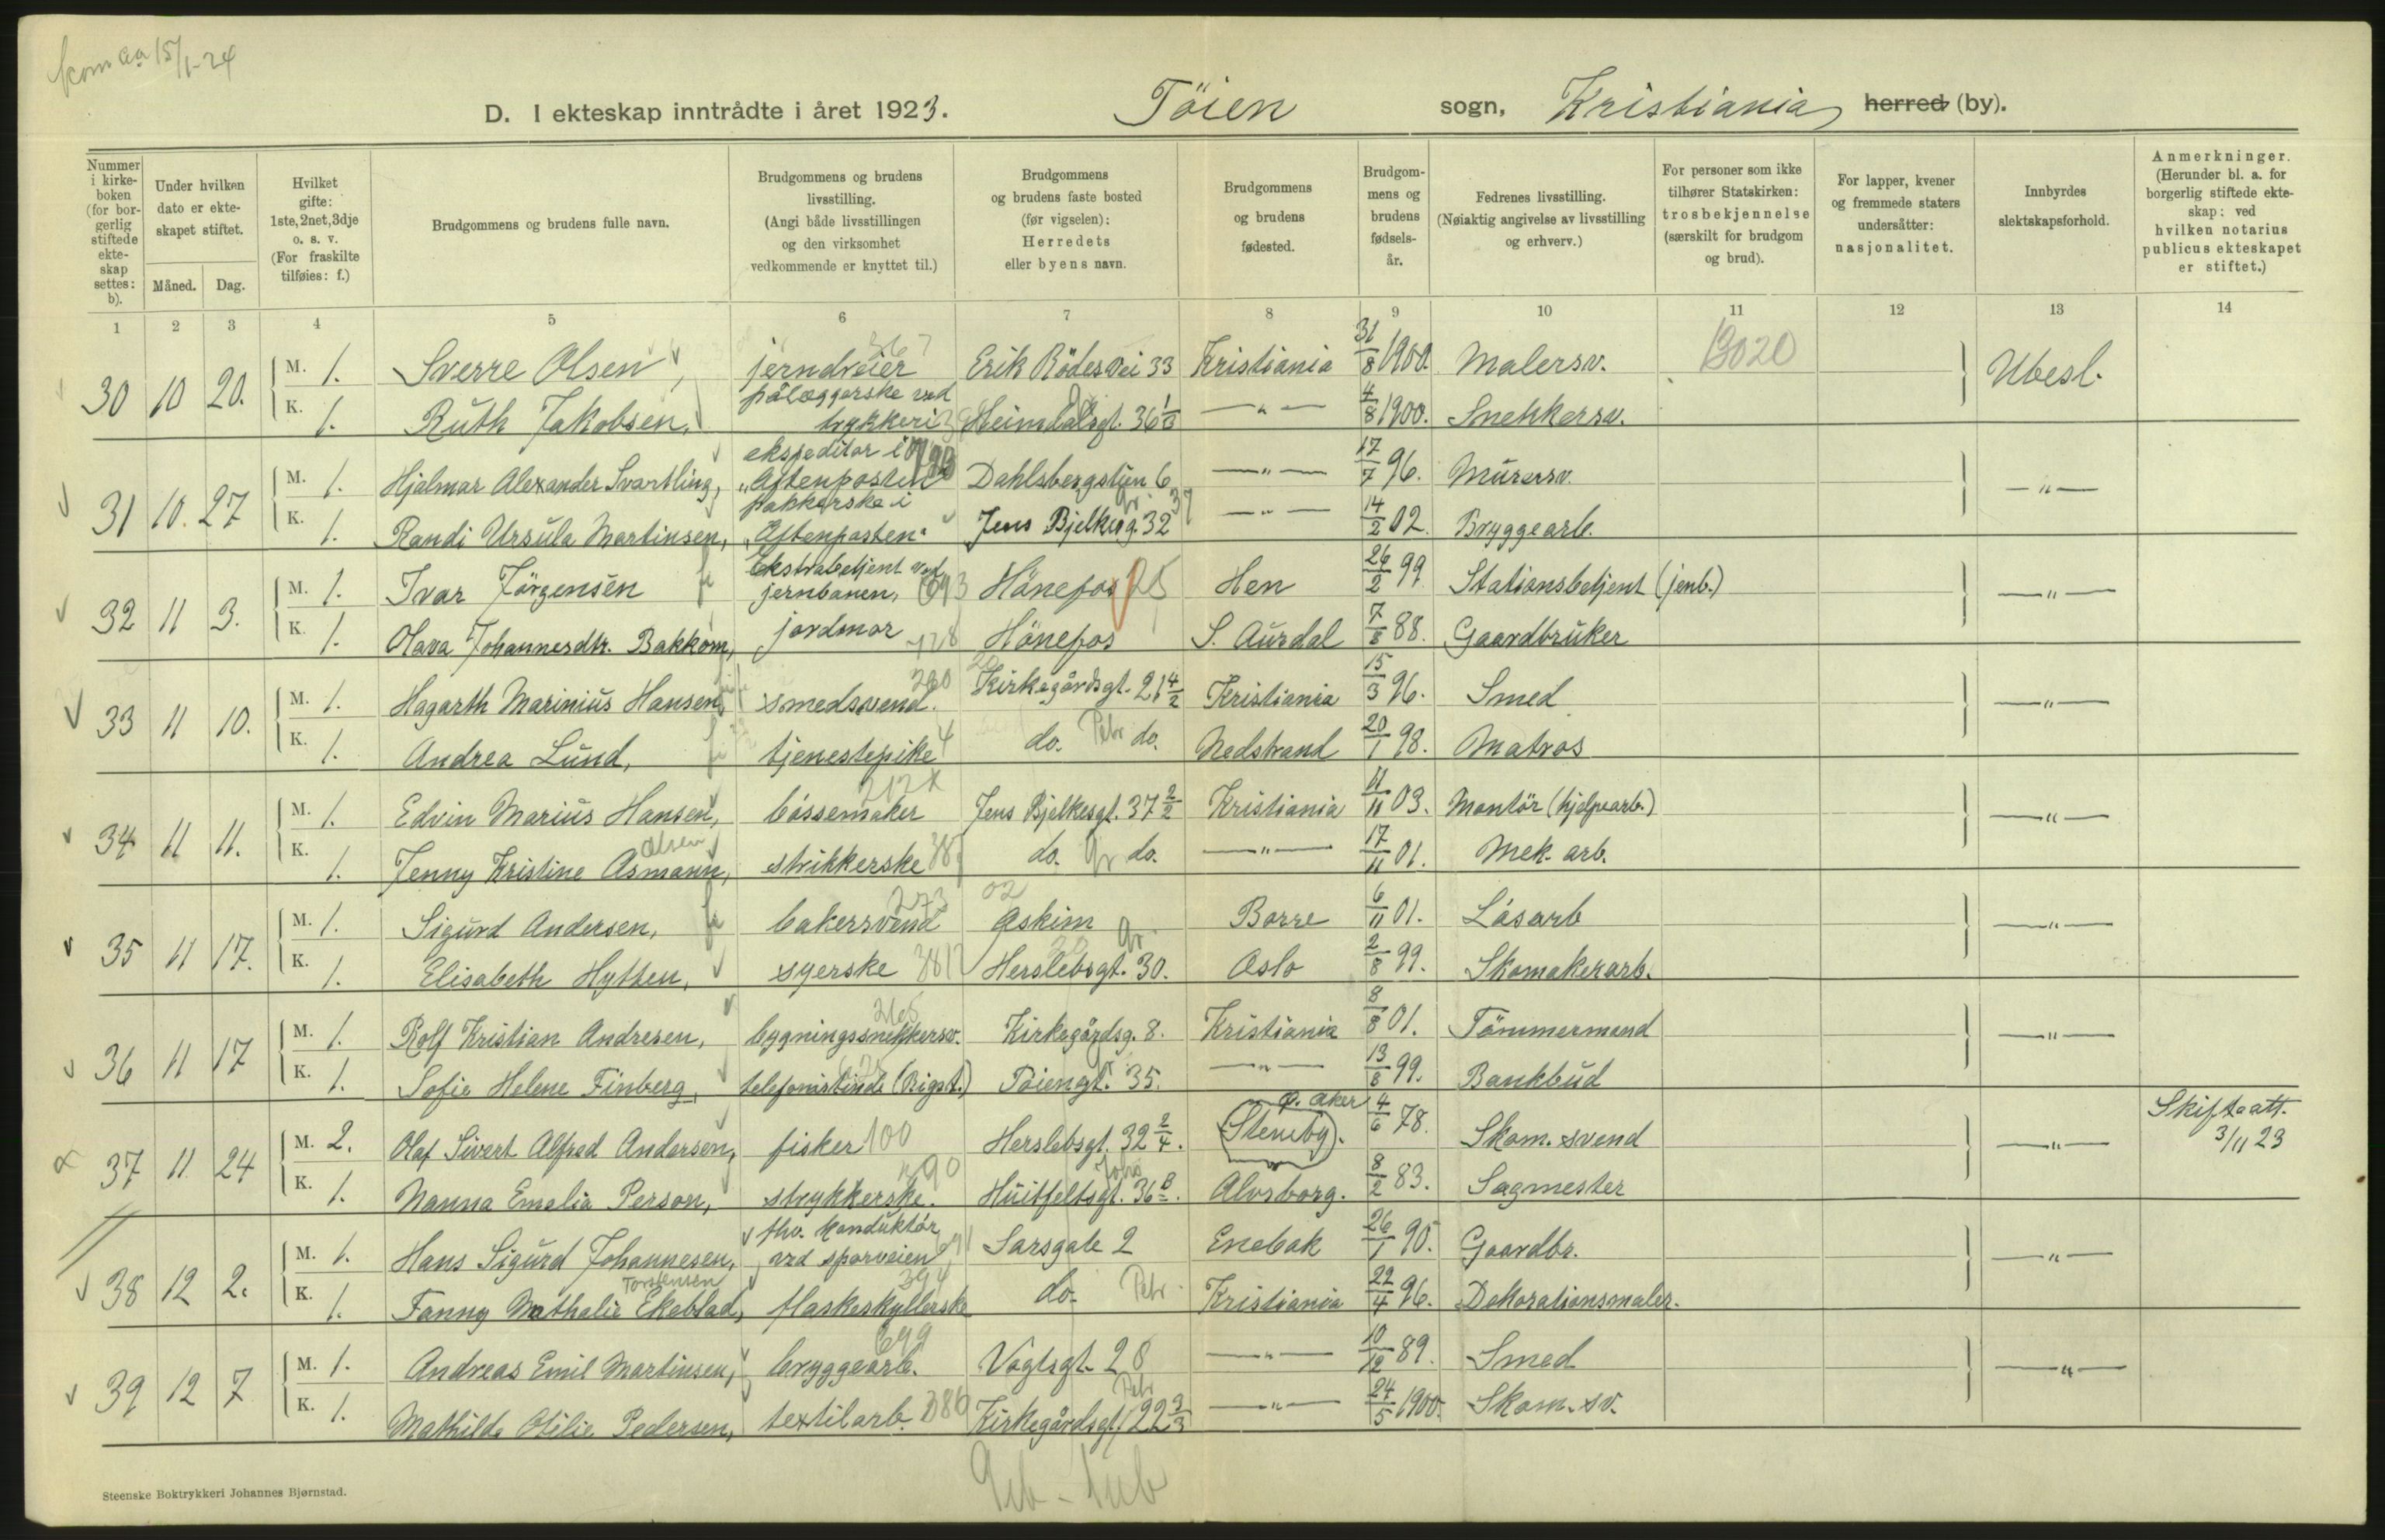 kom aa 15/1-24
D. I ekteskap inntrådte i året 1923. Töien sogn, Kristiania herred (by).
Nummer i kirkeboken (for borgerlig stiftede ekteskap settes: b).
Under hvilken dato er ekteskapet stiftet.
Måned. Dag.
Hvilket gifte: 1ste, 2net, 3dje o. s. v. (For fraskilte tilføies: f.)
Brudgommens og brudens fulle navn.
Brudgommens og brudens livsstilling. (Angi både livsstillingen og den virksomhet vedkommende er knyttet til.)
Brudgommens og brudens faste bosted (før vigselen): Herredets eller byens navn.
Brudgommens og brudens fødested.
Brudgommens og brudens fødselsår.
Fedrenes livsstilling. (Nøiaktig angivelse av livsstilling og erhverv.)
For personer som ikke tilhører Statskirken: trosbekjennelse (særskilt for brudgom og brud).
For lapper, kvener og fremmede staters undersåtter: nasjonalitet.
Innbyrdes slektskapsforhold.
Anmerkninger. (Herunder bl. a. for borgerlig stiftede ekteskap: ved hvilken notarius publicus ekteskapet er stiftet.)
1 2 3 4 5 6 7 8 9 10 11 12 13 14
30 10 20. M. 1. Sverre Olsen, jerndreier Erik Rödesvei 33 Kristiania 31/8 1900. Malersv. Ubesl.
K. 1. Ruth Jakobsen, pålæggerske ved trykkeri Heimdalsgt. 36 —"— 4/8 1900. Snekkersv.
31 10. 27 M. 1. Hjalmar Alexander Svartling, ekspeditør i "Aftenposten" Dahlsbergstien 6 —"— 17/7 96. Murersv. —"—
K. 1. Randi Ursula Martinsen, pakkerske i "Aftenposten" Jens Bjelkesg. 32 —"— 14/2 02. Bryggearb.
32 11 3. M. 1. Ivar Jörgensen Ekstrabetjent ved jernbanen, Hönefos Hen 26/2 99. Stationsbetjent (jenb.) —"—
K. 1. Olava Johannesdtr. Bakkom, jordmor Hönefos S. Aurdal 7/8 88. Gaardbruker
33 11 10. M. 1. Hagarth Marinius Hansen, smedsvend. Kirkegårdsgt. 21 4/2 Kristiania 15/3 96. Smed —"—
K. 1. Andrea Lund, tjenestepike do. Petr do. Nedstrand 20/1 98. Matros
34 11 11. M. 1. Edvin Marius Hansen, bössemaker Jens Bjelkesgt. 37 2/2 Kristiania 11/11 03. Montör (hjelpearb.) —"—
K. 1. Jenny Kristine Asmann, Olsen strikkerske do. Gr do. —"— 17/11 01. Mek. arb.
35 11 17. M. 1. Sigurd Andersen, bakersvend Askim Borre 6/11 01. Låsarb —"—
K. 1. Elisabeth Hytten, syerske Herslebsgt. 30. Oslo 2/8 99. Skomakerarb.
36 11 17 M. 1. Rolf Kristian Andresen, bygningssnekkersv. Kirkegårdsg. 8. Kristiania 8/8 01. Tömmermand —"—
K. 1. Sofie Helene Finberg, telefonistinde (Rigst.) Töiengt. 35. —"— 13/8 99. Bankbud
37 11 24 M. 2. Olaf Sivert Alfred Andersen, fisker 100 Herslebsgt. 32 2/4. Stensby. p. Aker 4/6 78. Skom. svend —"— Skifteatt. 3/11 23
K. 1. Nanna Emalia Person, strykkerske. Huitfeltsgt. 36 B. Alvsborg. 8/2 83. Sagmester
38 12 2. M. 1. Hans Sigurd Johannesen, fhv. konduktör ved sporveien Sarsgate 2 Enebak 26/1 90. Gaardbr. —"—
K. 1. Fanny Mathalie Ekeblad, Torstensen flaskeskyllerske 394 do. Petr Kristiania 22/4 96. Dekorationsmaler.
39 12 7 M. 1. Andreas Emil Martinsen, bryggearb. 699 Vogtsgt. 28 —"— 10/12 89. Smed —"—
K. 1. Mathilde Otilie Pedersen, textilarb. Kirkegårdsgt. 22 3/3 —"— 24/5 1900. Skom. sv.
Steenske Boktrykkeri Johannes Bjørnstad.